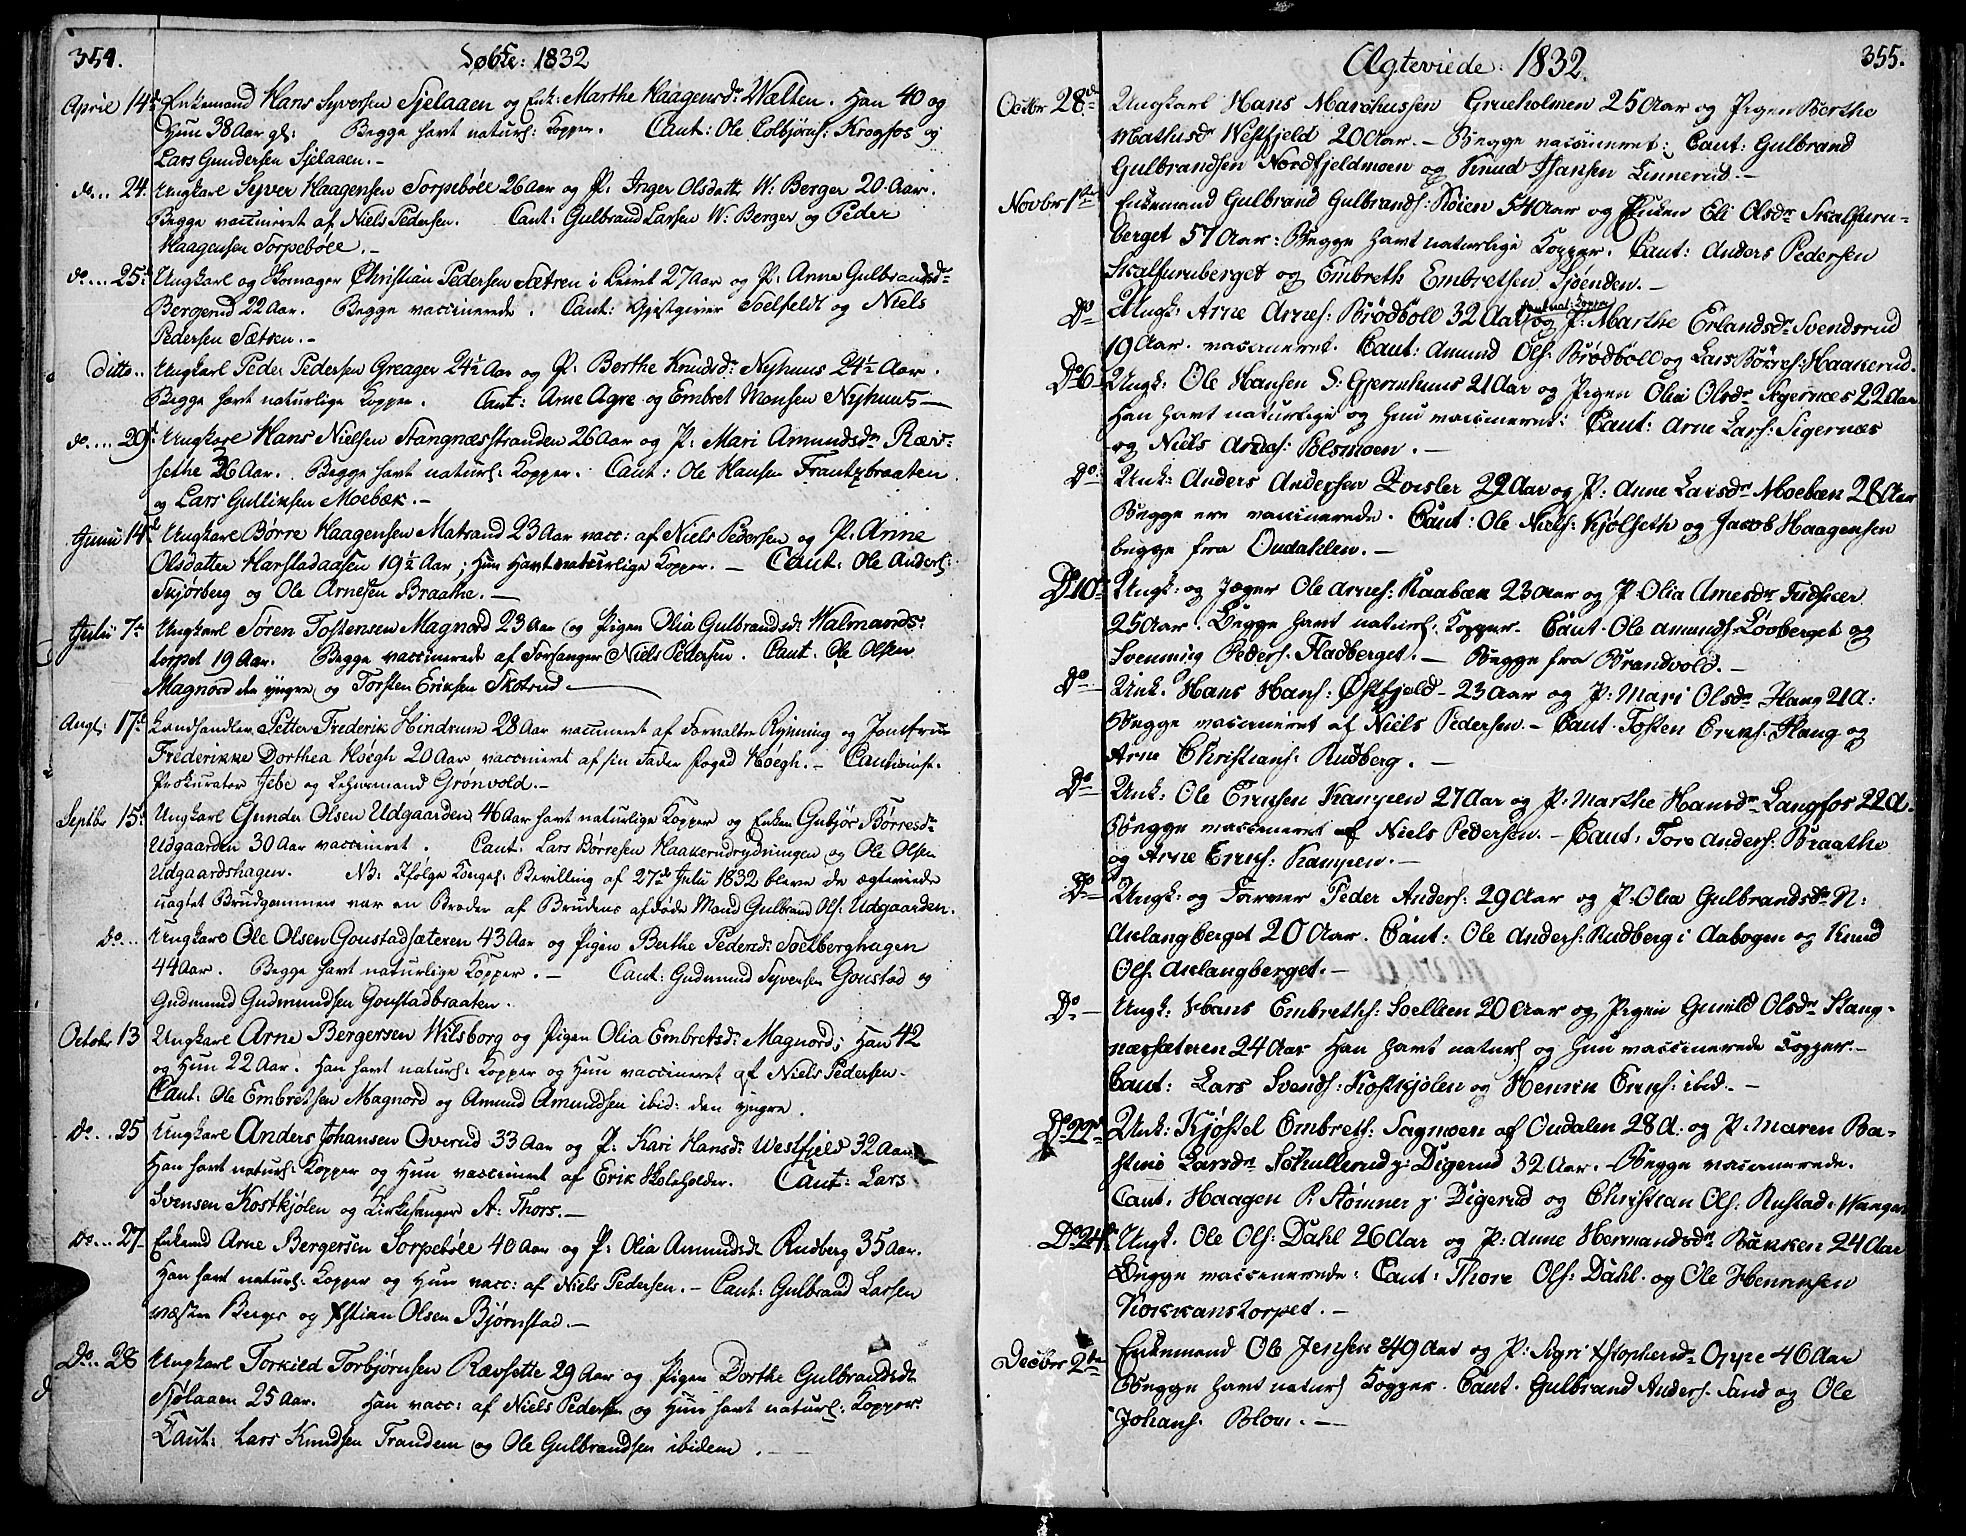 354.
Døbte: 1832
April 14d Enkemand Hans Syversen Sjelaaen og Enk: Marthe Haagensdr Wælten. Han 40 og
Hun 38 Aar gl: Begge havt naturl: Kopper. Caut: Ole Colbjørns: Krogfos og
Lars Gundersen Sjelaaen.-
do... 24. Ungkarl Syver Haagensen Torpebøle 26 Aar og P. Inger Olsdatt W: Berger 20 Aar.
Begge vaccineret af Niels Pedersen. Caut: Gulbrand Larsen W: Berger og Peder
Haagensen Torpebøle.-
do... 25. Ungkarl og Skomager Christian Pedersen Sætren i Leiret 27 Aar og P. Anne Gulbrandsdr
Bergerud 22 Aar. Begge vaccinerede. Caut: Gjestgiver Soelfeldt og Niels
Pedersen Sætren.-
Ditto.. Ungkarl Peder Pedersen Greager 24½ Aar og P. Berthe Knudsdr: Nyhuus 24½ Aar.
Begge havt naturlige Kopper. Caut: Arne Agre og Embret Monsen Nyhuus
do.... 29d Ungkarl Hans Nielsen Stangnæsstranden 26 Aar og P. Mari Amundsdr Ræv-
sethe 26 Aar. Begge havt naturl: Kopper. Caut: Ole Hansen Frantzbraaten
og Lars Gulliksen Moebæk.-
Junii 14d Ungkarl Børre Haagensen Matrand 23 Aar vacc: af Niels Pedersen og P. Anne
Olsdatter Harstadaasen 19½ Aar; Hun havt naturlige Kopper.- Caut: Ole Anders:
Skjørberg og Ole Arnesen Braathe.-
Julii 7de Ungkarl Søren Tostensen Magnord 23 Aar og Pigen Olia Gulbrandsdr Walmands-
torpet 19 Aar. Begge vaccinerede af Forsanger Niels Pedersen. Caut. Ole Olsen
Magnord den yngre og Torsten Eriksen Skotrud
Augl: 17d Landhandler Petter Frederik Hindrum 28 Aar vaccineret af Forvalter Ryning og Jomfrue
Frederikke Dorthea Høegh 20 Aar vaccineret af sin Fader Foged Høegh.- Cautionist.
Prokurator Jebe og Lehnsmand Grønvold.-
Septbr 15. Ungkarl Gunder Olsen Udgaarden 46 Aar havt naturlige Kopper og Enken Gubjør Børresdr
Udgaarden 30 Aar vaccineret. Caut: Lars Børresen Haakerudrydningen og Ole Olsen
Udgaardshagen. NB: Ifølge Kongel: Bevilling af 27de Julii 1832 bleve de ægteviede
uagtet Brudgommen var en Broder af Brudens afdøde Mand Gulbrand Ols: Udgaarden.
do... Ungkarl Ole Olsen Goustadsæteren 43 Aar og Pigen Berthe Pedersdr: Soelberghagen
44 Aar. Begge havt naturlige Kopper.- Caut: Gudmund Syversen Goustad og
Gudmund Gudmundsen Goustadbraaten.
Octobr 13 Ungkarl Arne Bergersen Wilsborg og Pigen Olia Embretsdr: Magnord; Han 42
og Hun 22 Aar. Han havt naturl: Kopper og Hun vaccineret af Niels Pedersen.
Caut: Ole Embretsen Magnord og Amund Amundsen ibid: den yngre.
do... 25 Ungkarl Anders Johansen Overud 33 Aar og P. Kari Hansdr: Westfjeld 32 Aar.
Han havt naturl: Kopper og Hun vaccineret af Erik Skoleholder. Caut: Lars
Svensen Kostkjølen og Kirkesanger A: Thors.-
do... 27 Enkemd Arne Bergersen Torpebøle 40 Aar og P. Olia Amundsdr Rudberg 35 Aar.
Han havt naturl: Kopper og Hun vacc: af Niels Pedersen.- Caut: Gulbrand Larsen
væstre Berger og Xstian Olsen Bjørnstad.-
Do.. 28 Ungkarl Torkild Torbjørnsen Rævsette 29 Aar og Pigen Dorthe Gulbrandsdr
Sjølaaen 25 Aar. Han vacc: af Niels Pedersen og Hun havt naturl: Kopper.
Caut: Lars Knudsen Trandem og Ole Gulbrandsen ibidem.
Ægteviede: 1832.
355.
Octbr 28d Ungkarl Hans Marchussen Grueholmen 25 Aar og Pigen Berthe
Mathisdr Westfjeld 20 Aar.- Begge vaccineret: Caut: Gulbrand
Gulbrandsen Nordfjeldmoen og Knud Hansen Linnerud.-
Novbr 1ste Enkemand Gulbrand Gulbrands: Røien 54 Aar og Enken Eli Olsdr Skalfuru-
berget 57 Aar: Begge havt naturlige Kopper. Caut: Anders Pedersen
Skalfuruberget og Embreth Embretsen Sjøenden.-
Do Ungk: Arne Arnes: Brødbøll 32 Aar havt nat: Kopper og P: Marthe Erlandsdr Svendsrud
19 Aar. vaccineret. Caut: Amund Ols: Brødbøll og Lars Børres: Haakerud.
Do 6 Ungk: Ole Hansen S: Gjernhuus 21 Aar og Pigen Olia Olsdr Sigernæs 22 Aar
Han havt naturlige og Hun vaccineret: Caut: Arne Lars: Sigernæs
og Niels Arnes: Polsmoen.-
Do Unk: Anders Andersen Zoisler 22 Aar og P: Anne Larsdr Moebæn 28 Aar
Begge ere vaccinerede. Caut: Ole Niels: Kjølseth og Jacob Haagensen
begge fra Oudahlen.-
Do 10 Ungk: og Jæger Ole Arnes: Raabæn 23 Aar og P. Olia Arnesdr
25 Aar. Begge havt naturl: Kopper. Caut. Ole Amunds: Løvberget og
Svenning Peders: Fladberget.- Begge fra Brandvold.-
Do Unk. Hans Hans: Østfjeld 23 Aar og P: Mari Olsdr Haug 21 A:
Begge vaccineret af Niels Pedersen.- Caut. Tosten Eriks: Haug og
Arne Christians: Rudberg.-
Do Unk: Ole Eriksen Kampen 27 Aar og P: Marthe Hansdr Langfos 22 A.
Begge vaccineret af Niels Pedersen.- Caut: Tore Anders: Braathe
og Arne Eriks: Kampen.-
Do Ungk: og Farver Peder Anders: 29 Aar og P. Olia Gulbrandsdr N:
Aklangberget 20 Aar. Caut: Ole Anders: Rudberg i Aabogen og Knud
Ols: Aklangberget.-
Do Ungk: Hans Embreths: Soellien 20 Aar og Pigen Gunild Olsdr Stang-
næssæteren 24 Aar Han havt naturl og Hun vaccinerede Kopper.-
Caut: Lars Svends: Kostkjølen og Henrik Eriks: ibid.-
Do 22d Unk: Kjøstel Embreths: Sagmoen af Oudalen 28 A. og P. Maren Ba-
stine Larsdr Skullerud p: Digerud 32 Aar.- Begge vaccinerede.
Caut. Haagen P. Stømner p: Digerud og Christian Ols: Rustad i Wanger
Do 24d Ungk. Ole Ols: Dahl 26 Aar og P: Anne Hermandsdr Bakken 24 Aar
Begge vaccinerede: Caut: Thore Ols: Dahl og Ole Henriksen
Kokkanstorpet.-
Decbr 2de Enkemand Ole Jensen 49 Aar og P: Sigri Xstophersdr Oppe 46 Aar
Begge havt naturl Kopper. Caut. Gulbrand Anders: Sand og Ole
Johans: Blom.-